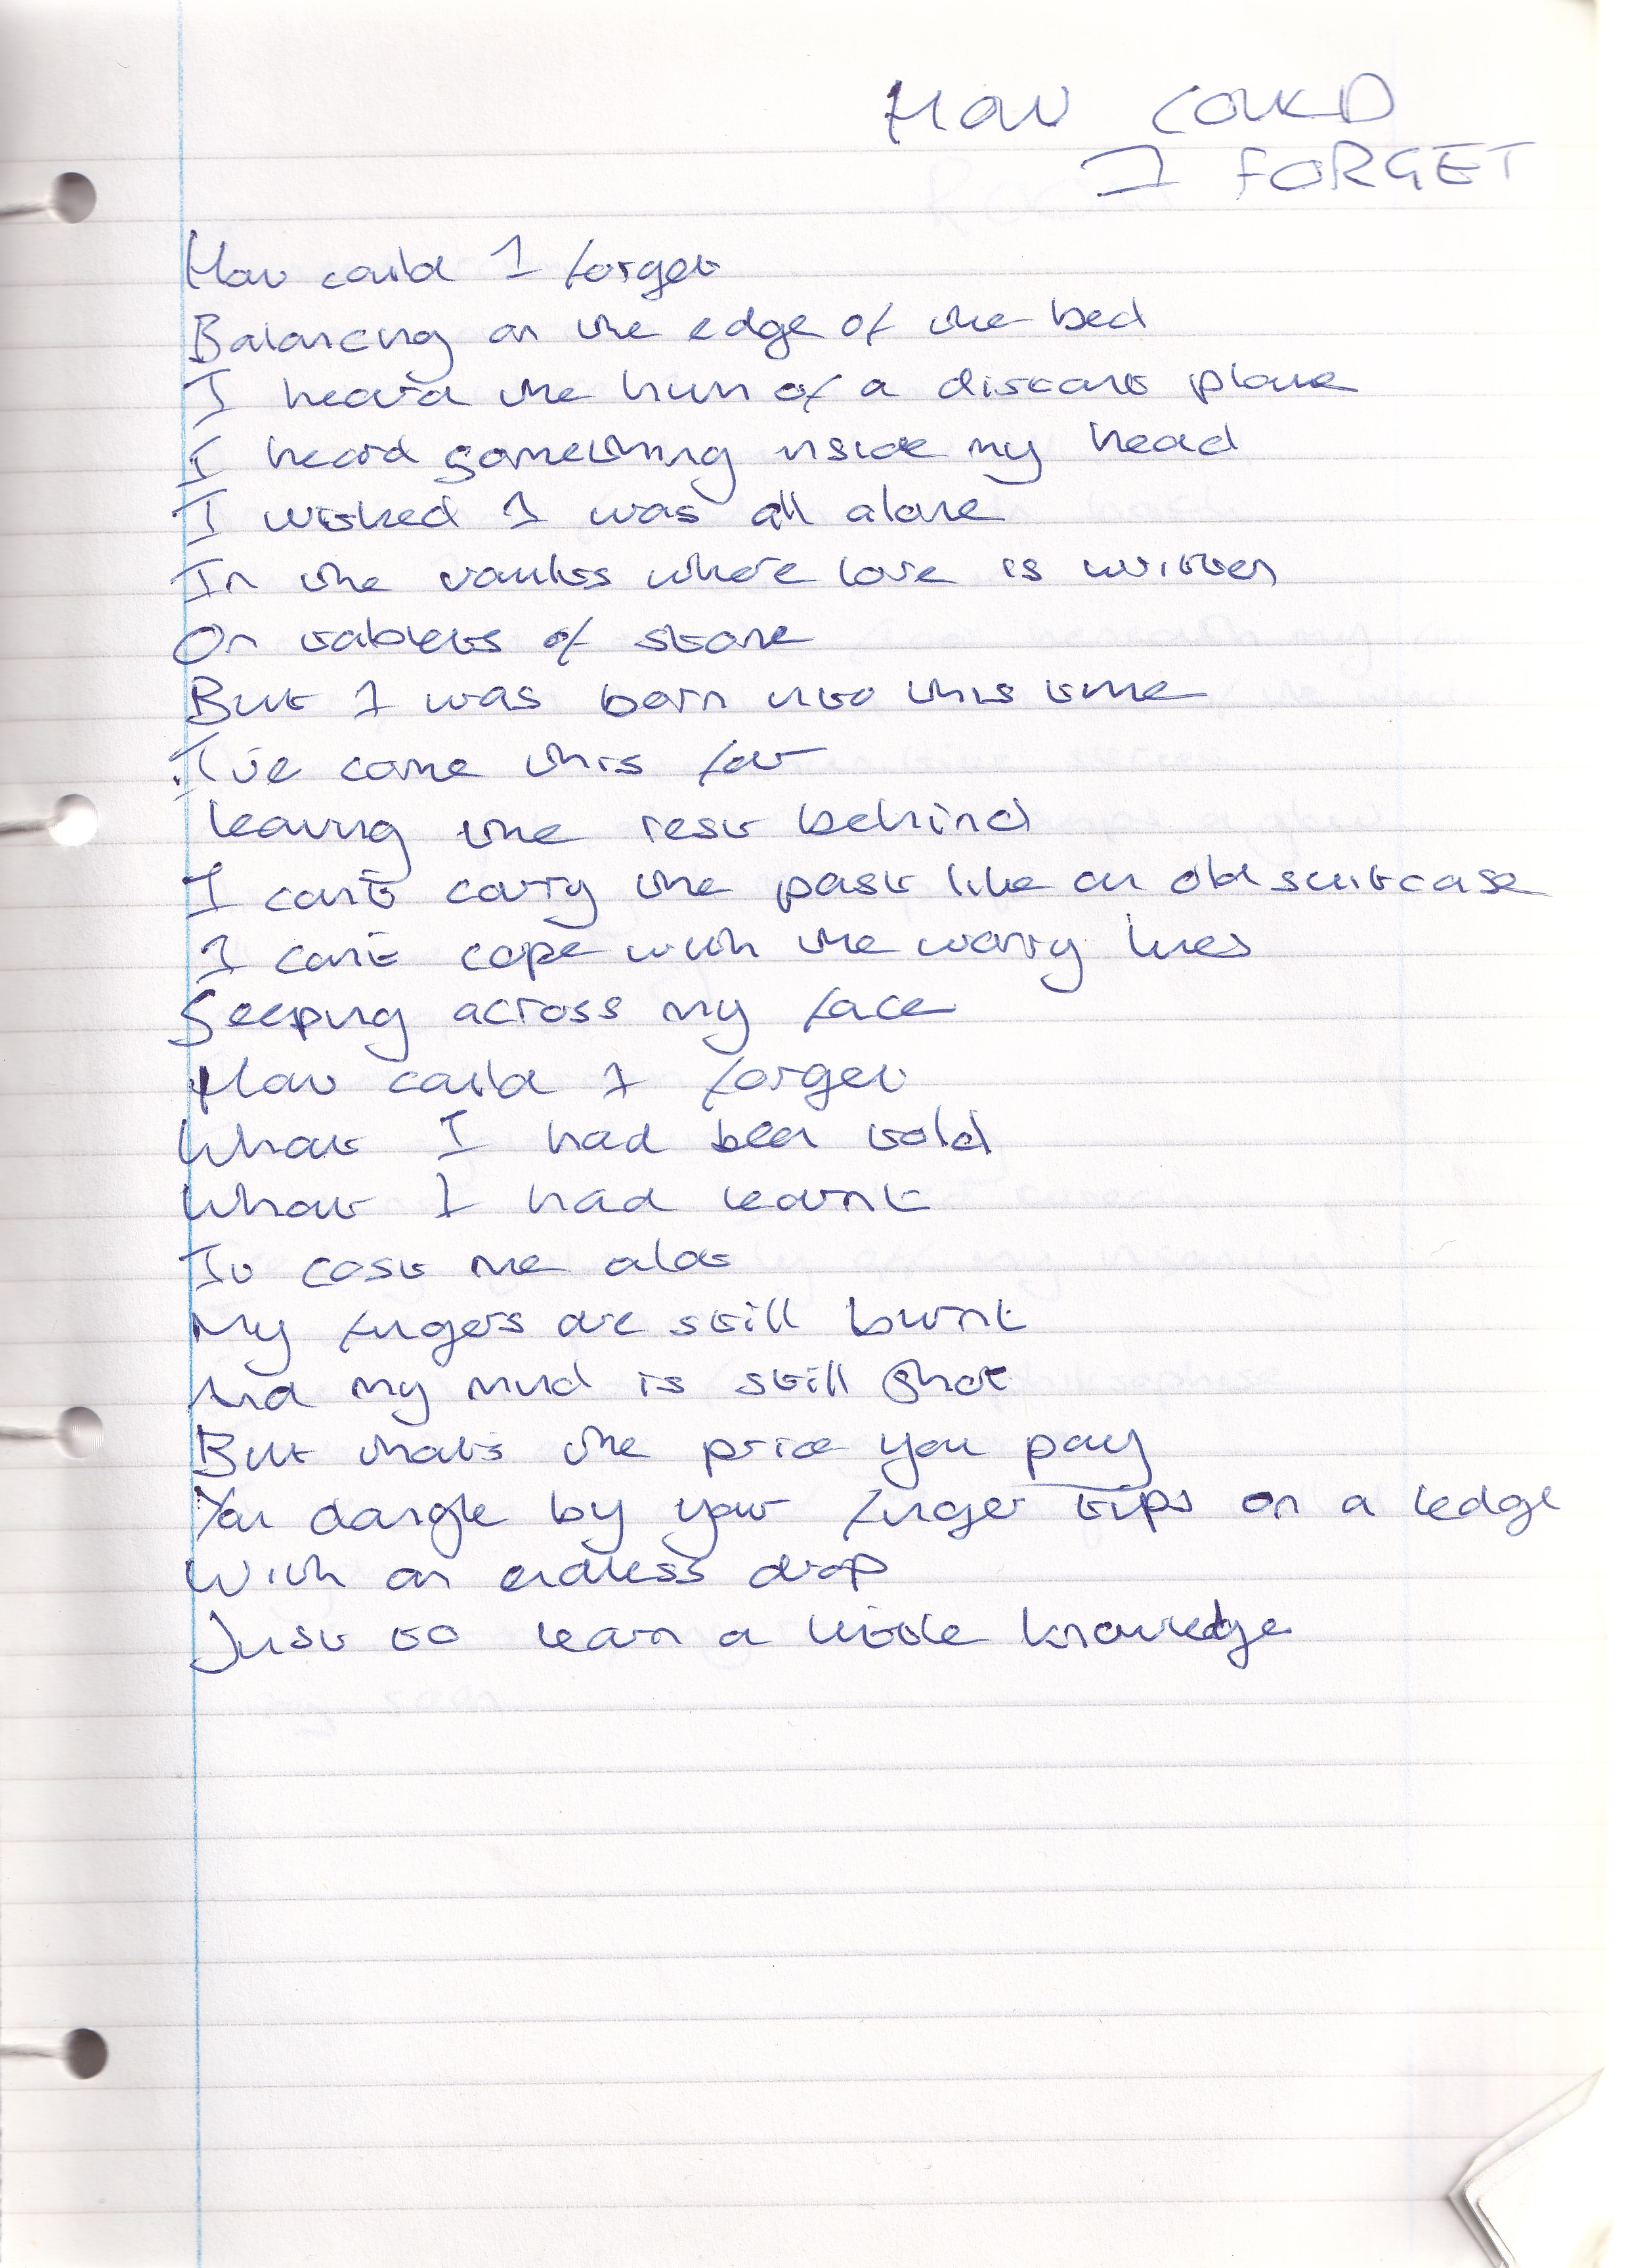 HOW COULD
I FORGET
How could I forget
Balancing on the edge of the bed
I heard the hum of a distant plane
I heard something inside my head
I wished I was all alone
In the vaults where love is written
On tablets of stone
But I was born into this time
I've come this far
leaving the rest behind
I can't carry the past like an old suitcase
I can't cope with the worry lines
Seeping across my face
How could I forget
What I had been told
What I had learnt
It cost me alot
My fingers are still burnt
And my mind is still shot
But that's the price you pay
You dangle by your finger tips on a ledge
With an endless drop
Just to learn a little knowledge